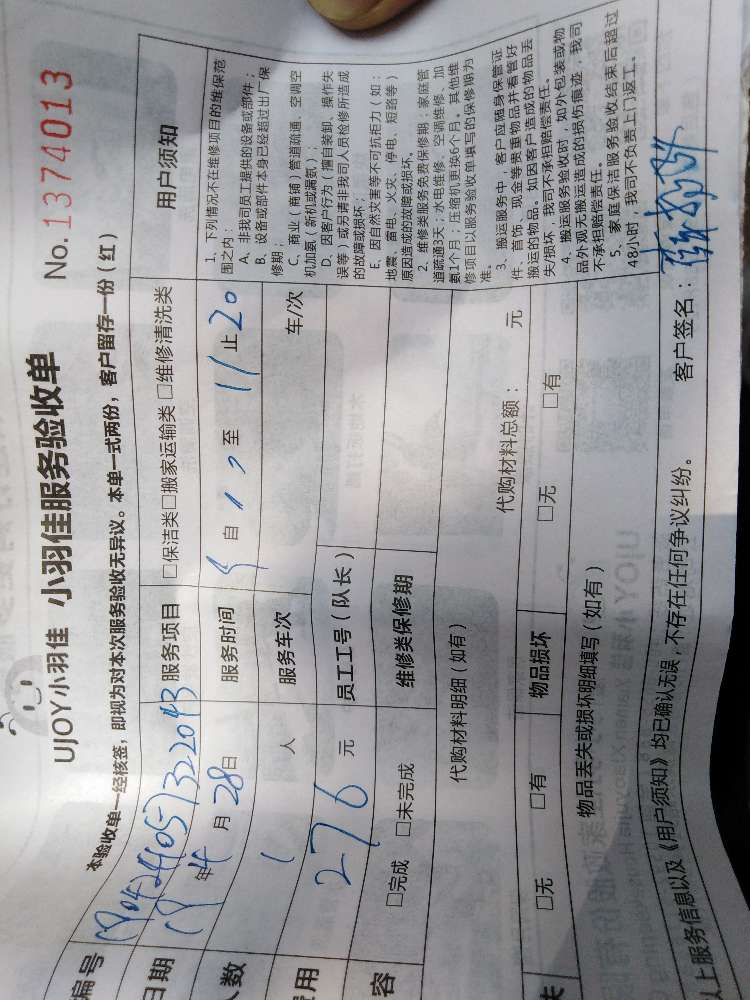 UJOY小羽佳 小羽佳服务验收单
No. 1374013
本验收单一经核签，即视为对本次服务验收无异议。本单一式两份，客户留存一份（红）
编号
服务项目 □保洁类□搬家运输类 □维修清洗类
日期 19 年 4 月 28 日
服务时间 自 至 11 止 20
人数 1 人
服务车次 车/次
费用 276 元
员工工号（队长）
容 □完成 □未完成
维修类保修期
用户须知
1、下列情况不在维修项目的维保范
围之内：
A、非我司员工提供的设备或部件；
B、设备或部件本身已经超过出厂保
修期；
C、商业（商铺）管道疏通、空调空
机加氨（新机或漏氨）；
D、因客户行为（擅自装卸、操作失
误等）或有请非我司人员检修所造成
的故障或损坏；
E、因自然灾害等不可抗拒力（如：
地震、雷电、火灾、停电、短路等）
原因造成的故障或损坏。
2、维修类服务免费保修期：家庭管
道疏通3天；水电维修、空调维修、加
氨1个月；压缩机更换6个月。其他维
修项目以服务验收单填写的保修期为
准。
3、搬运服务中，客户应随身保管证
件、首饰、现金等贵重物品并看管好
搬运的物品。如因客户造成的物品丢
失/损坏，我司不承担赔偿责任。
4、搬运服务验收时，如外包装或物
品外观无搬运造成的损伤痕迹，我司
不承担赔偿责任。
5、家庭保洁服务验收结束后超过
48小时，我司不负责上门返工。
代购材料明细（如有）
代购材料总额： 元
失 □无 □有
物品损坏 □无 □有
物品丢失或损坏明细填写（如有）
以上服务信息以及《用户须知》均已确认无误，不存在任何争议纠纷。
客户签名：